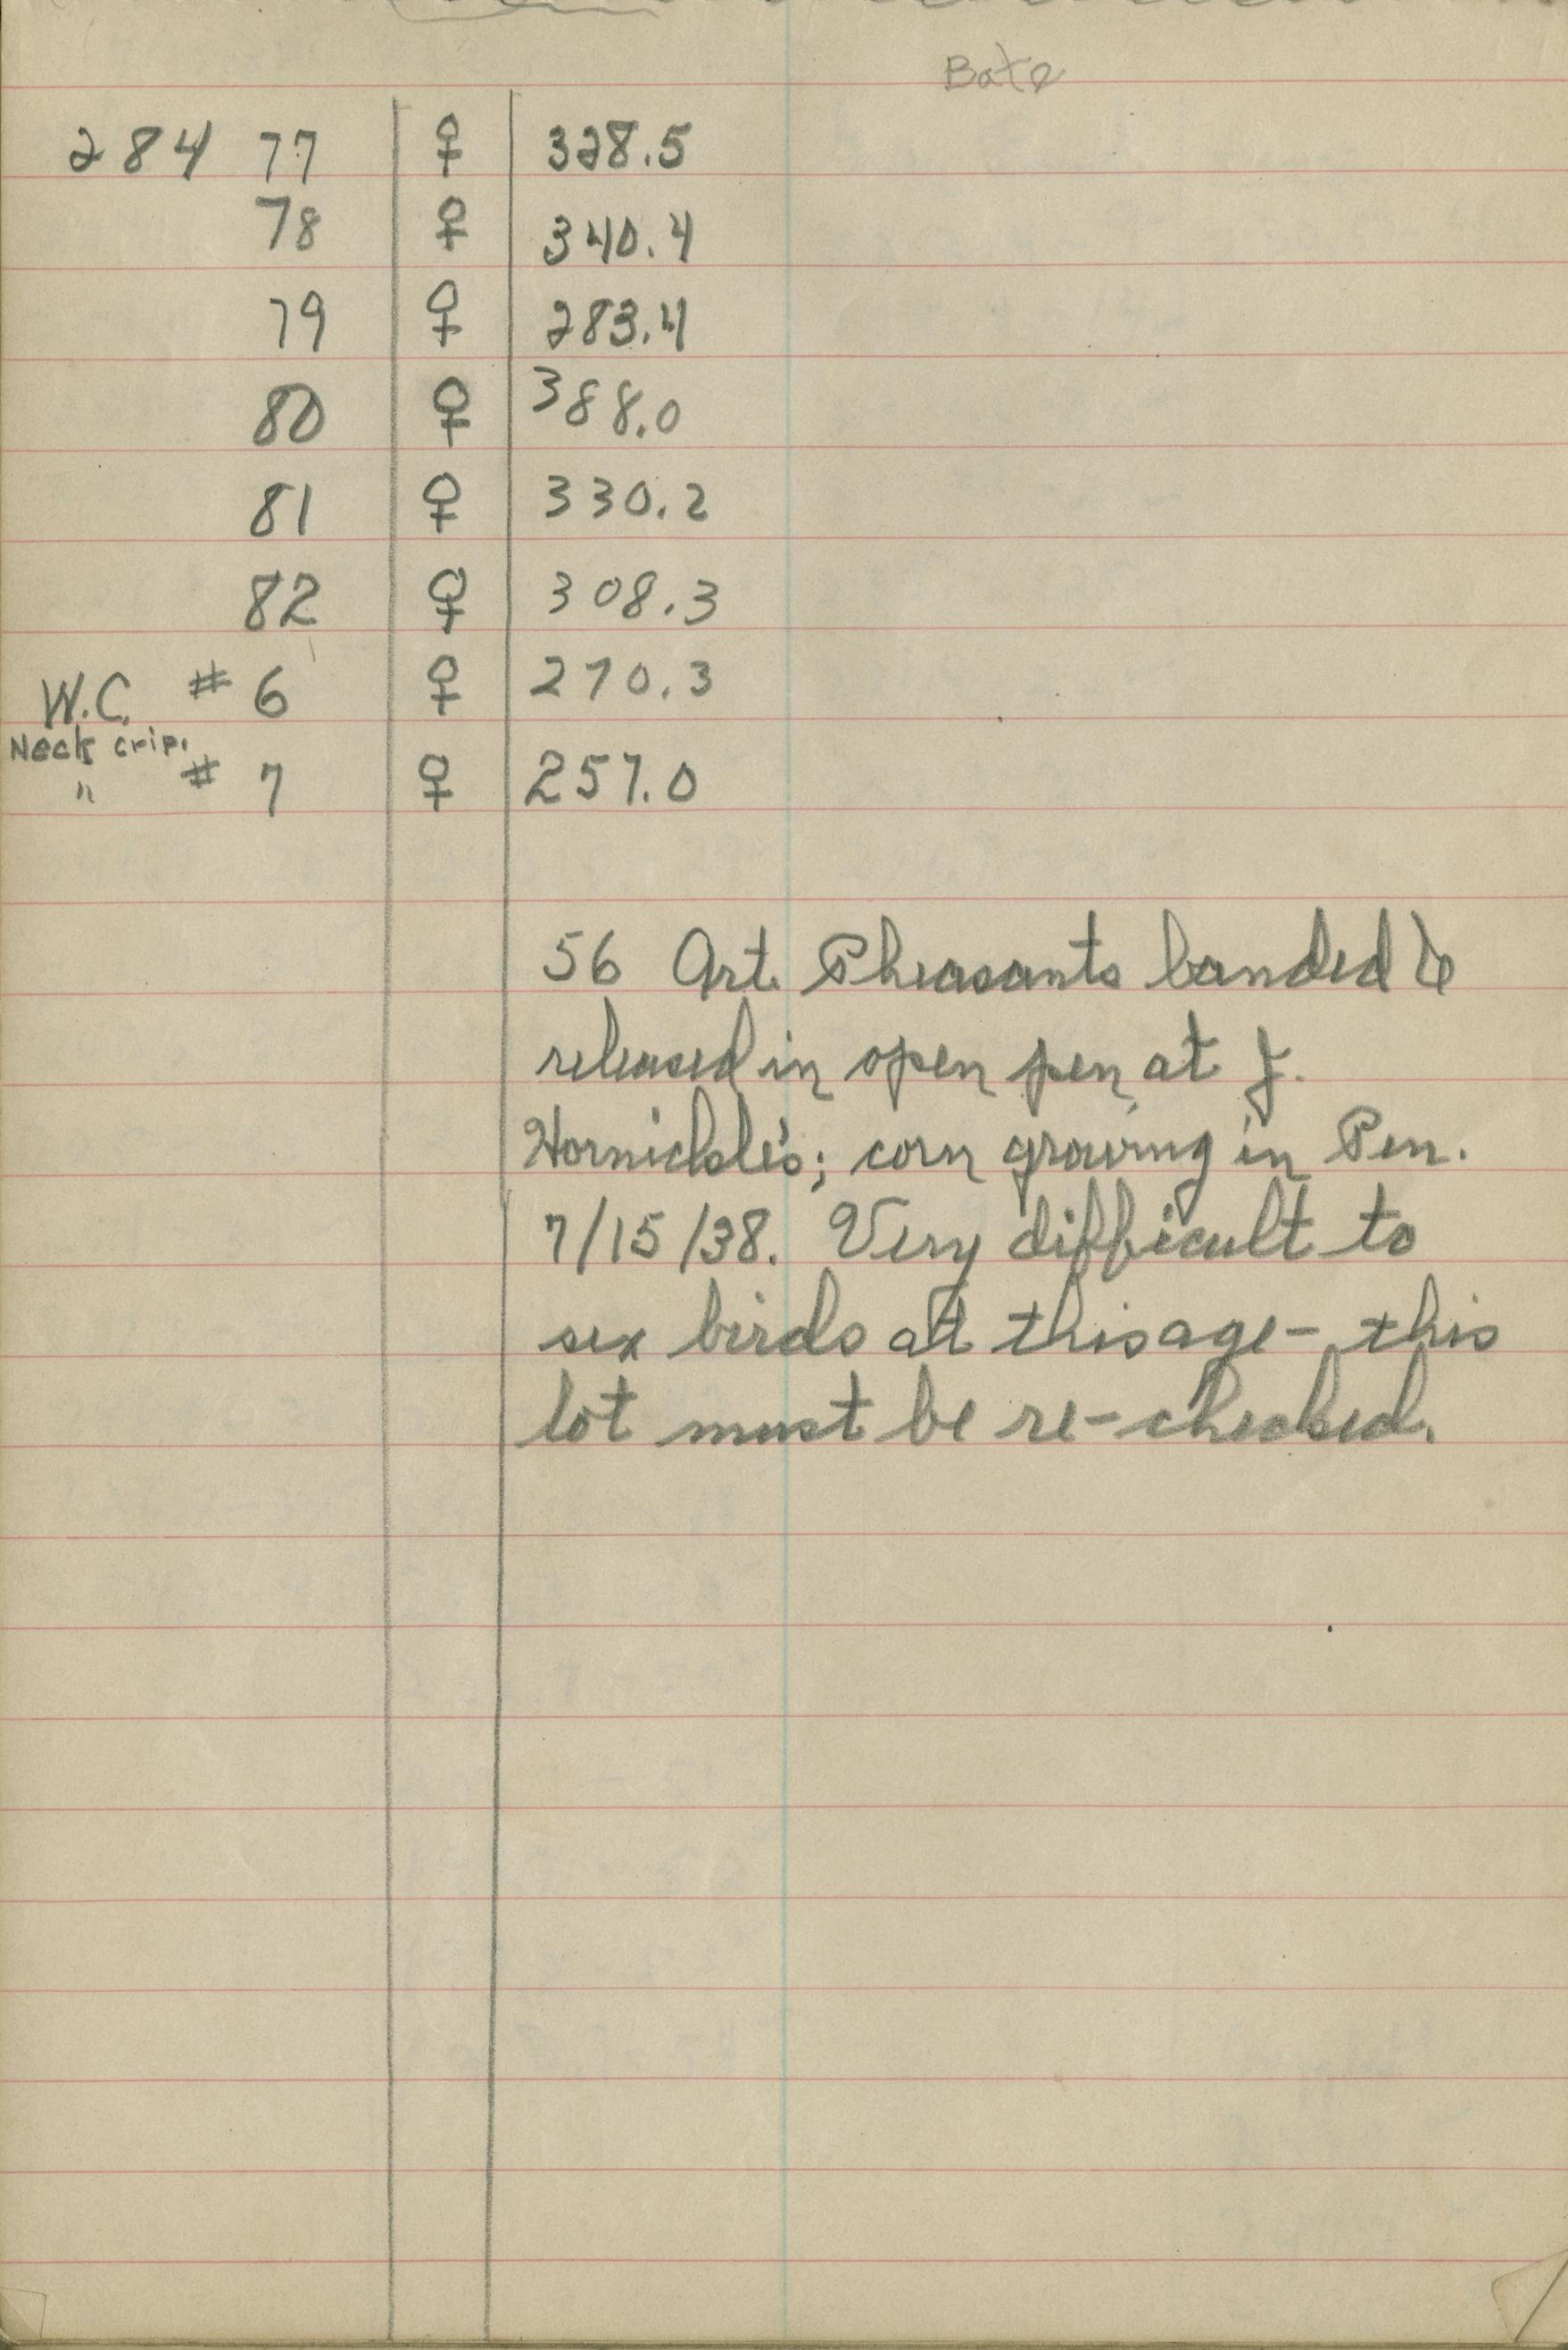 284 77 ♀ 328.5
78 ♀ 340.4
79 ♀ 283.4
80 ♀ 388.0
81 ♀ 330.2
82 ♀ 308.3
W.C. # 6 ♀ 270.3
Neck crip.
" # 7 ♀ 257.0
56 Art. Pheasants banded &
released in open pen at J.
Hornickle's; corn growing in Pen.
7/15/38. Very difficult to
sex birds at this age - this
lot must be re-checked.